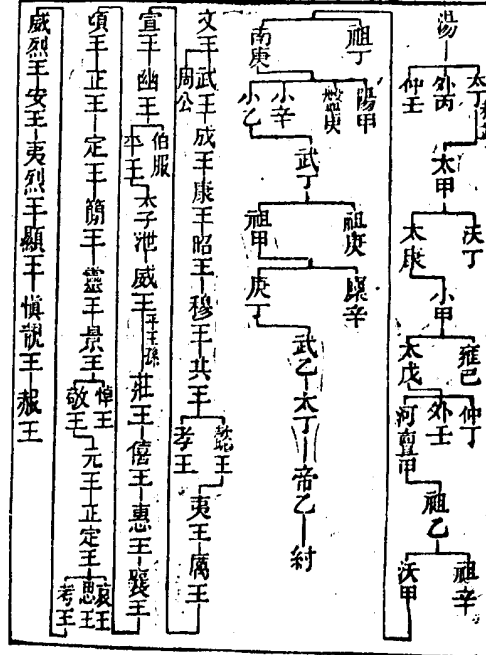 湯
太丁
外丙
仲壬
太甲
沃丁
太康
小甲
雍巳
太戊
仲丁
外壬
河亶甲
祖乙
祖辛
沃甲
祖丁
南庚
陽甲
盤庚
小辛
小乙
武丁
祖庚
祖甲
廩辛
庚丁
武乙
太丁
帝乙
紂
文王
武王
周公
成王
康王
昭王
穆王
共王
懿王
孝王
夷王
厲王
宣王
幽王
伯服
平王
太子泄
威王
平王孫
莊王
僖王
惠王
襄王
頃王
正王
定王
簡王
靈王
景王
悼王
敬王
元王
正定王
哀王
思王
考王
威烈王
安王
夷烈王
顯王
慎靚王
赧王